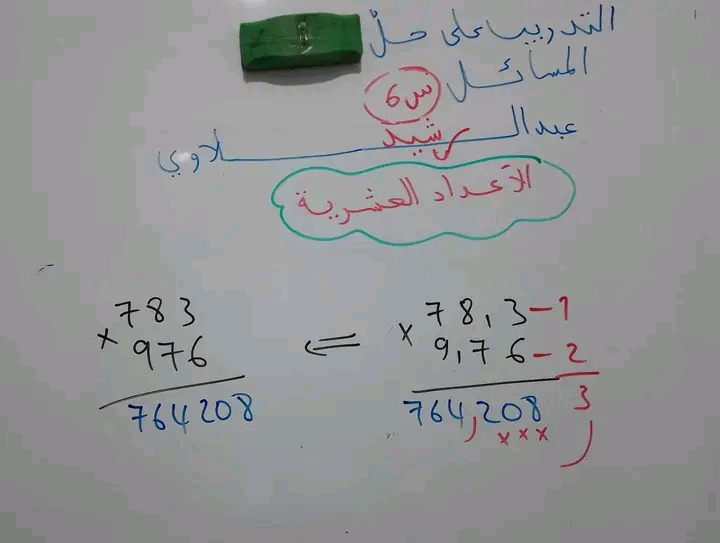 التدريب على حلّ
المسائل س6
عبد الرشيد لاوي
الأعداد العشرية
78,3 - 1
× 9,76 - 2
764,208 3
× × ×
⇐
783
× 976
764208